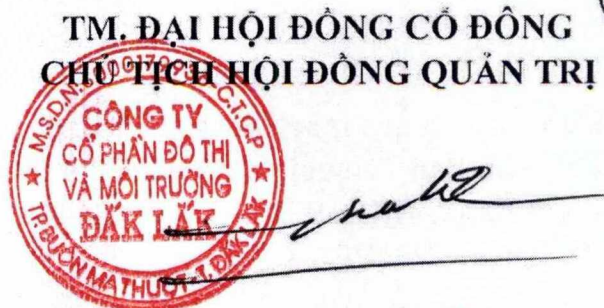 TM. ĐẠI HỘI ĐỒNG CỔ ĐÔNG
CHỦ TỊCH HỘI ĐỒNG QUẢN TRỊ
M.S.D.N:
C.T.C.P
CÔNG TY
CỔ PHẦN ĐÔ THỊ
VÀ MÔI TRƯỜNG
ĐẮK LẮK
TP. BUÔN MA THUỘT - T. ĐẮK LẮK